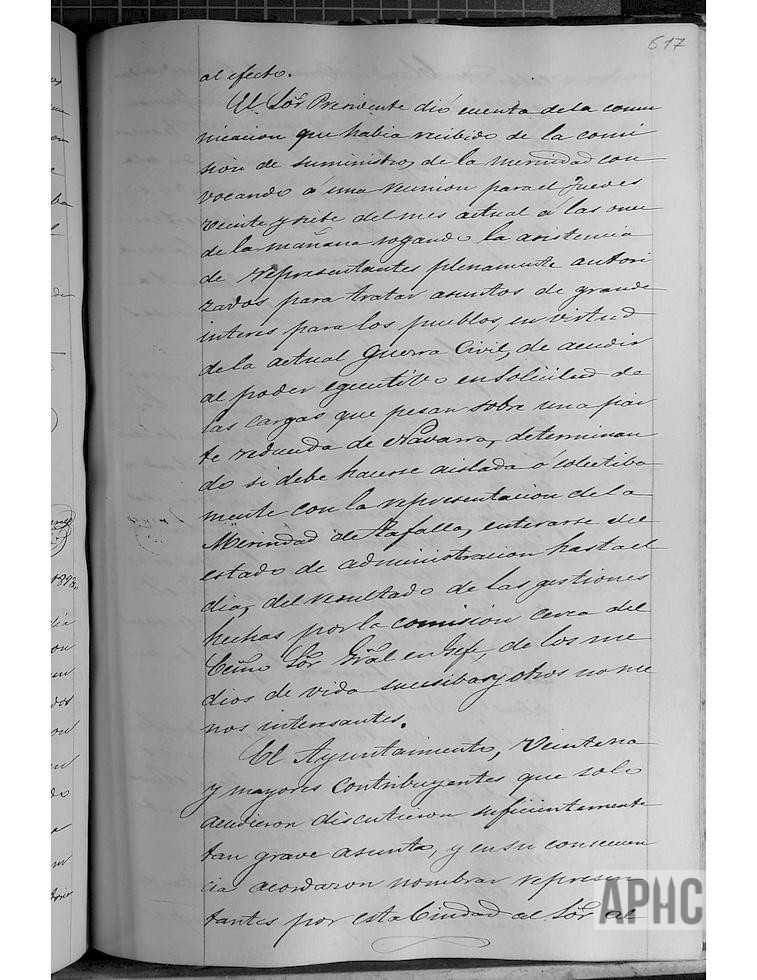 617
al efecto.
El Sor Presidente dió cuenta de la comu
nicacion que habia recibido de la comi
sion de suministros, de la merindad con
vocando á una reunion para el Jueves
veinte y siete del mes actual á las once
de la mañana rogando la asistencia
de representantes plenamente autori
zados para tratar asuntos de grande
interes para los pueblos, en virtud
de la actual Guerra Civil, de acudir
al poder egecutivo en solicitud de
las cargas que pesan sobre una par
te reducida de Navarra, determinan
do si debe hacerse aislada ó colectiba
mente con la representacion de la
Merindad de Tafalla, enterarse del
estado de administracion hasta el
dia, del resultado de las gestiones
hechas por la comision cerca del
Ecmo Sor Gral en Gefe, de los me
dios de vida sucesibas y otros no me
nos interesantes.
El Ayuntamiento, Veintena
y mayores Contribuyentes que solo
acudieron discutieron suficientemente
tan grave asunto, y en su consecuen
cia acordaron nombrar represen
tantes por esta Ciudad al Sor Al
APHC